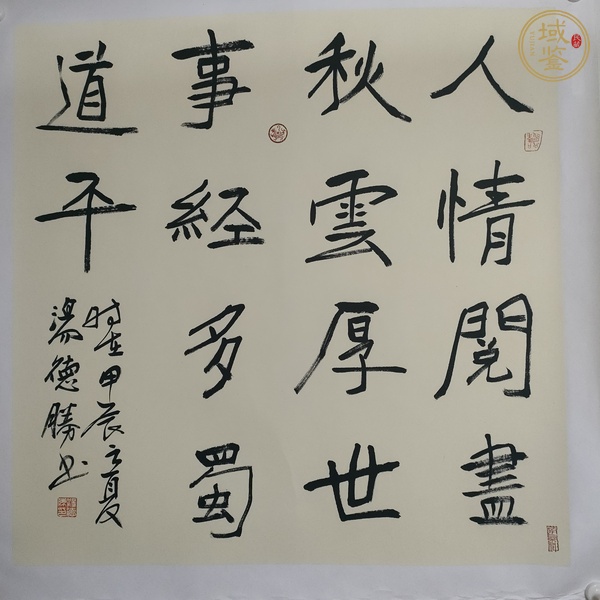 人情閱盡
秋雲厚世
事經多蜀
道平
時在甲辰之夏
湯德勝书
域鉴